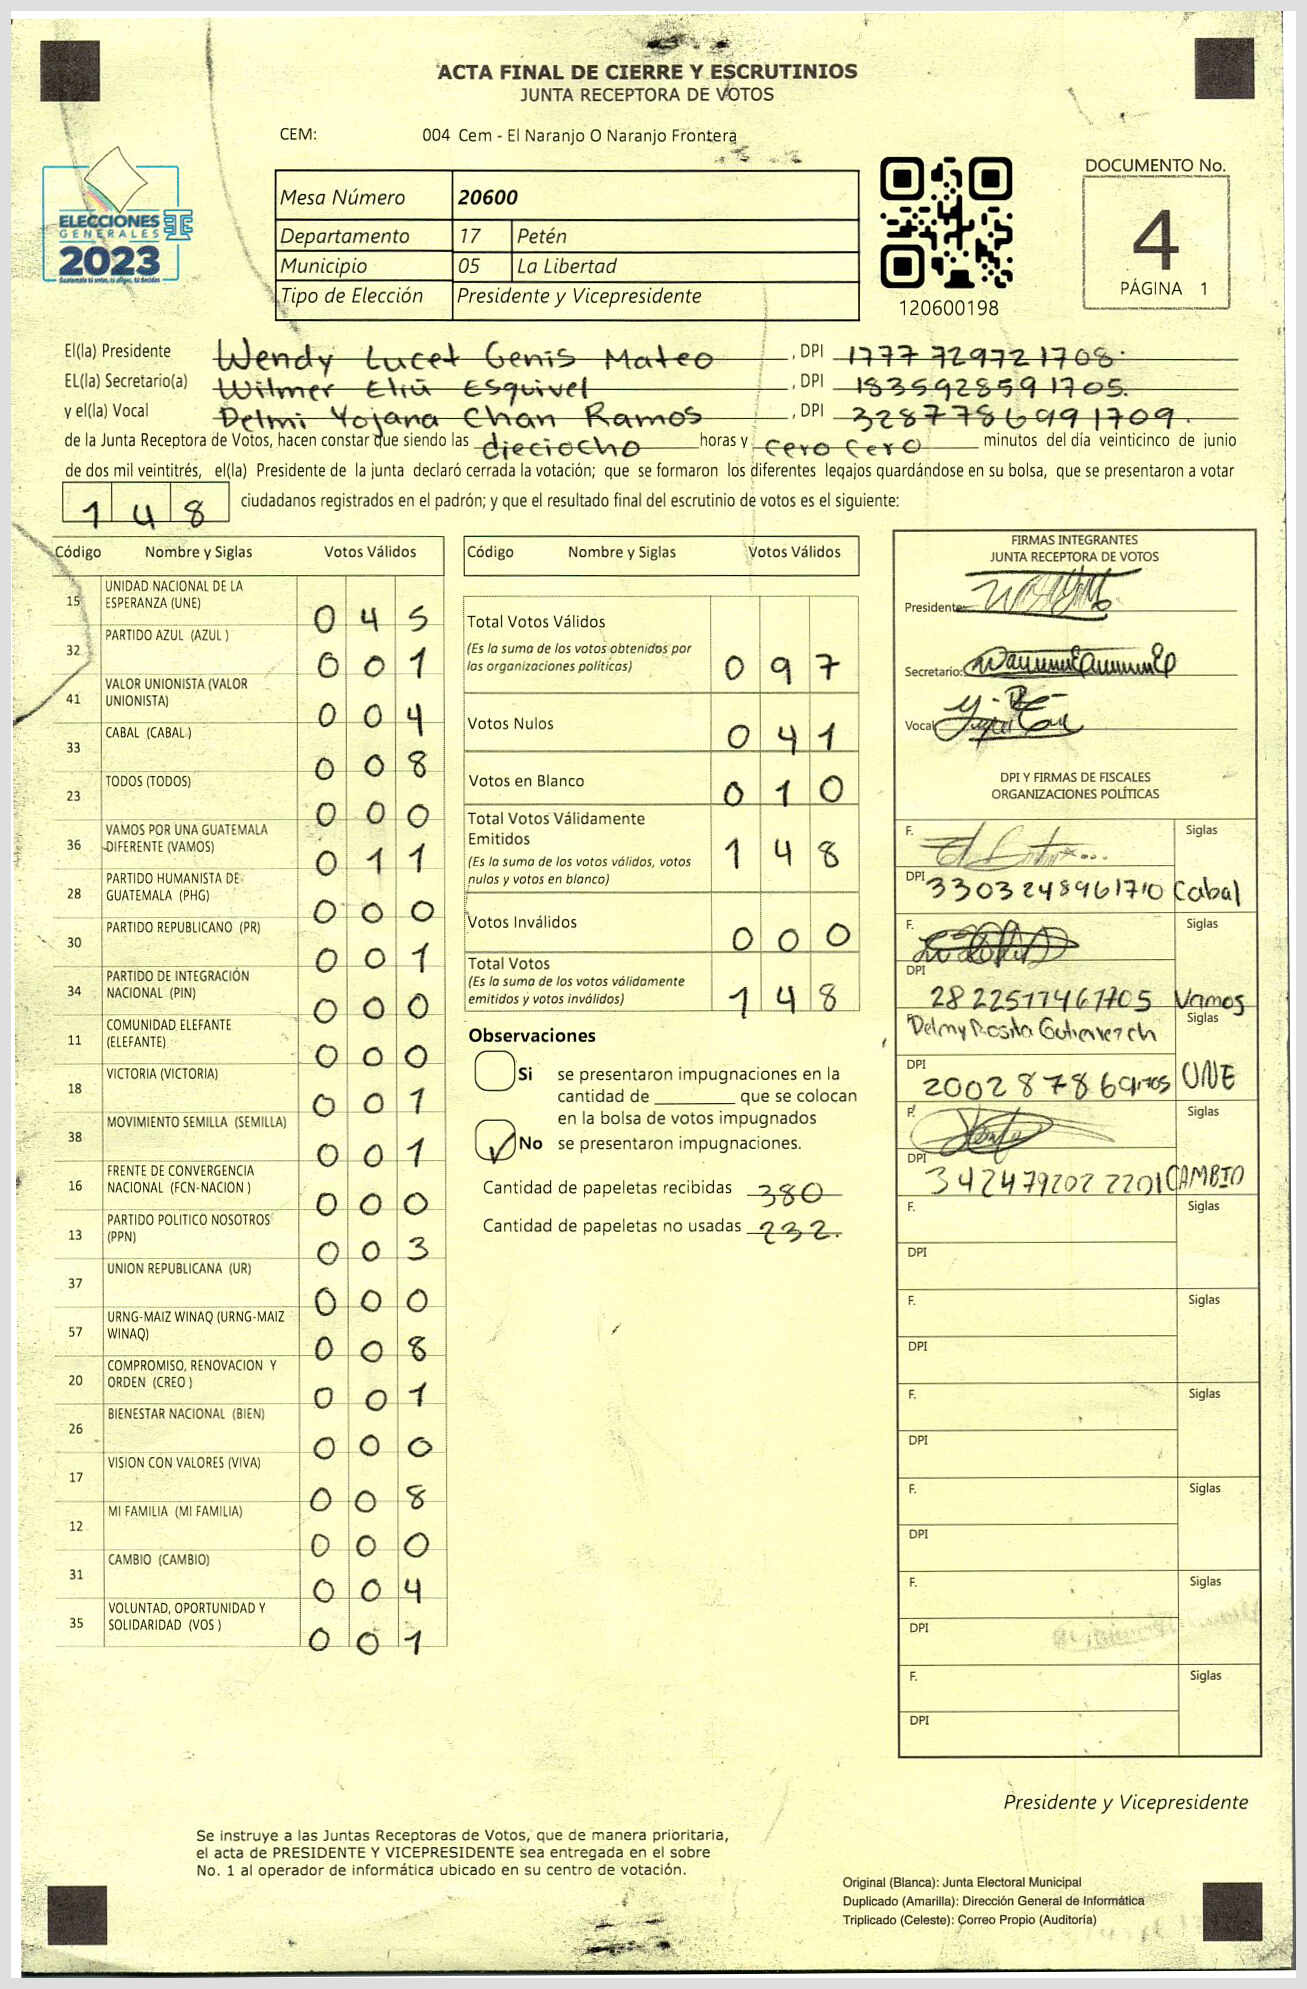 ACTA FINAL DE CIERRE Y ESCRUTINIOS
JUNTA RECEPTORA DE VOTOS
CEM: 004 Cem - El Naranjo O Naranjo Frontera
DOCUMENTO No.
4
PÁGINA 1
ELECCIONES
GENERALES
2023
Mesa Número 20600
Departamento 17 Petén
Municipio 05 La Libertad
Tipo de Elección Presidente y Vicepresidente
120600198
El(la) Presidente Wendy Lucet Genis Mateo , DPI 1777 729721708.
EL(la) Secretario(a) Wilmer Eliú Esquivel , DPI 1835928591705.
y el(la) Vocal Delmi Yojana Chan Ramos , DPI 3287786991709.
de la Junta Receptora de Votos, hacen constar que siendo las dieciocho horas y cero cero minutos del día veinticinco de junio
de dos mil veintitrés, el(la) Presidente de la junta declaró cerrada la votación; que se formaron los diferentes legajos guardándose en su bolsa, que se presentaron a votar
148 ciudadanos registrados en el padrón; y que el resultado final del escrutinio de votos es el siguiente:
Código Nombre y Siglas Votos Válidos
15 UNIDAD NACIONAL DE LA
ESPERANZA (UNE) 045
32 PARTIDO AZUL (AZUL ) 001
41 VALOR UNIONISTA (VALOR
UNIONISTA) 004
33 CABAL (CABAL ) 008
23 TODOS (TODOS) 000
36 VAMOS POR UNA GUATEMALA
DIFERENTE (VAMOS) 011
28 PARTIDO HUMANISTA DE
GUATEMALA (PHG) 000
30 PARTIDO REPUBLICANO (PR) 001
34 PARTIDO DE INTEGRACIÓN
NACIONAL (PIN) 000
11 COMUNIDAD ELEFANTE
(ELEFANTE) 000
18 VICTORIA (VICTORIA) 001
38 MOVIMIENTO SEMILLA (SEMILLA) 001
16 FRENTE DE CONVERGENCIA
NACIONAL (FCN-NACION ) 000
13 PARTIDO POLITICO NOSOTROS
(PPN) 003
37 UNION REPUBLICANA (UR) 000
57 URNG-MAIZ WINAQ (URNG-MAIZ
WINAQ) 008
20 COMPROMISO, RENOVACION Y
ORDEN (CREO ) 001
26 BIENESTAR NACIONAL (BIEN) 000
17 VISION CON VALORES (VIVA) 008
12 MI FAMILIA (MI FAMILIA) 000
31 CAMBIO (CAMBIO) 004
35 VOLUNTAD, OPORTUNIDAD Y
SOLIDARIDAD (VOS ) 001
Código Nombre y Siglas Votos Válidos
Total Votos Válidos
(Es la suma de los votos obtenidos por
las organizaciones políticas) 097
Votos Nulos 041
Votos en Blanco 010
Total Votos Válidamente
Emitidos
(Es la suma de los votos válidos, votos
nulos y votos en blanco) 148
Votos Inválidos 000
Total Votos
(Es la suma de los votos válidamente
emitidos y votos inválidos) 148
Observaciones
Si se presentaron impugnaciones en la
cantidad de ________ que se colocan
en la bolsa de votos impugnados
No se presentaron impugnaciones.
Cantidad de papeletas recibidas 380
Cantidad de papeletas no usadas 232.
FIRMAS INTEGRANTES
JUNTA RECEPTORA DE VOTOS
Presidente:
Secretario:
Vocal
DPI Y FIRMAS DE FISCALES
ORGANIZACIONES POLÍTICAS
F. Siglas
DPI 3303248961710 Cabal
F. Siglas
DPI 2822517461705 Vamos
F. Delmy Rosita Siglas
DPI 2002878691705 UNE
F. Siglas
DPI 3424792022201 CAMBIO
F. Siglas
DPI
F. Siglas
DPI
F. Siglas
DPI
F. Siglas
DPI
F. Siglas
DPI
F. Siglas
DPI
Presidente y Vicepresidente
Se instruye a las Juntas Receptoras de Votos, que de manera prioritaria,
el acta de PRESIDENTE Y VICEPRESIDENTE sea entregada en el sobre
No. 1 al operador de informática ubicado en su centro de votación.
Original (Blanca): Junta Electoral Municipal
Duplicado (Amarilla): Dirección General de Informática
Triplicado (Celeste): Correo Propio (Auditoría)